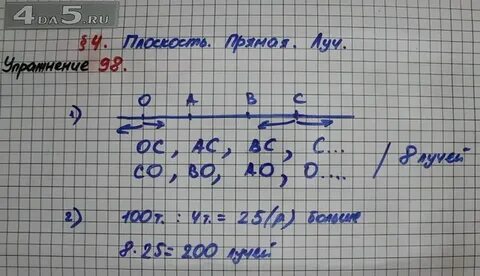 4DA5.RU
§4. Плоскость. Прямая. Луч.
Упражнение 98.
1)
O A B C
OC, AC, BC, C...
CO, BO, AO, O.... / 8 лучей
2) 100т. : 4т. = 25(р) больше
8·25=200 лучей